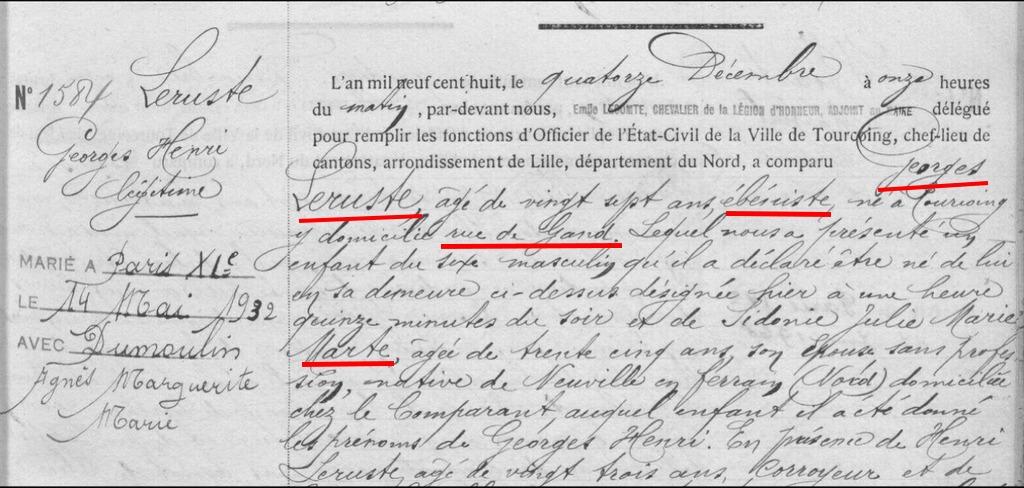 N° 1584 Leruste
Georges Henri
légitime
MARIÉ A Paris XIe
LE 14 Mai 1932
AVEC Dumoulin
Agnès Marguerite
Marie
L'an mil neuf cent huit, le quatorze Décembre à onze heures
du matin, par-devant nous, Emile LECOMTE, CHEVALIER de la LÉGION D'HONNEUR, ADJOINT au MAIRE délégué
pour remplir les fonctions d'Officier de l'État-Civil de la Ville de Tourcoing, chef-lieu de
cantons, arrondissement de Lille, département du Nord, a comparu Georges
Leruste, âgé de vingt sept ans, ébéniste, né à Tourcoing
y domicilié rue de Gand. Lequel nous a présenté un
enfant du sexe masculin qu'il a déclaré être né de lui
en sa demeure ci-dessus désignée hier à une heure
quinze minutes du soir et de Sidonie Julie Marie
Marte, âgée de trente cinq ans, son épouse, sans profes
sion, native de Neuville en ferrain (Nord) domiciliée
chez le Comparant auquel enfant il a été donné
les prénoms de Georges Henri. En présence de Henri
Leruste, âgé de vingt trois ans, Corroyeur et de